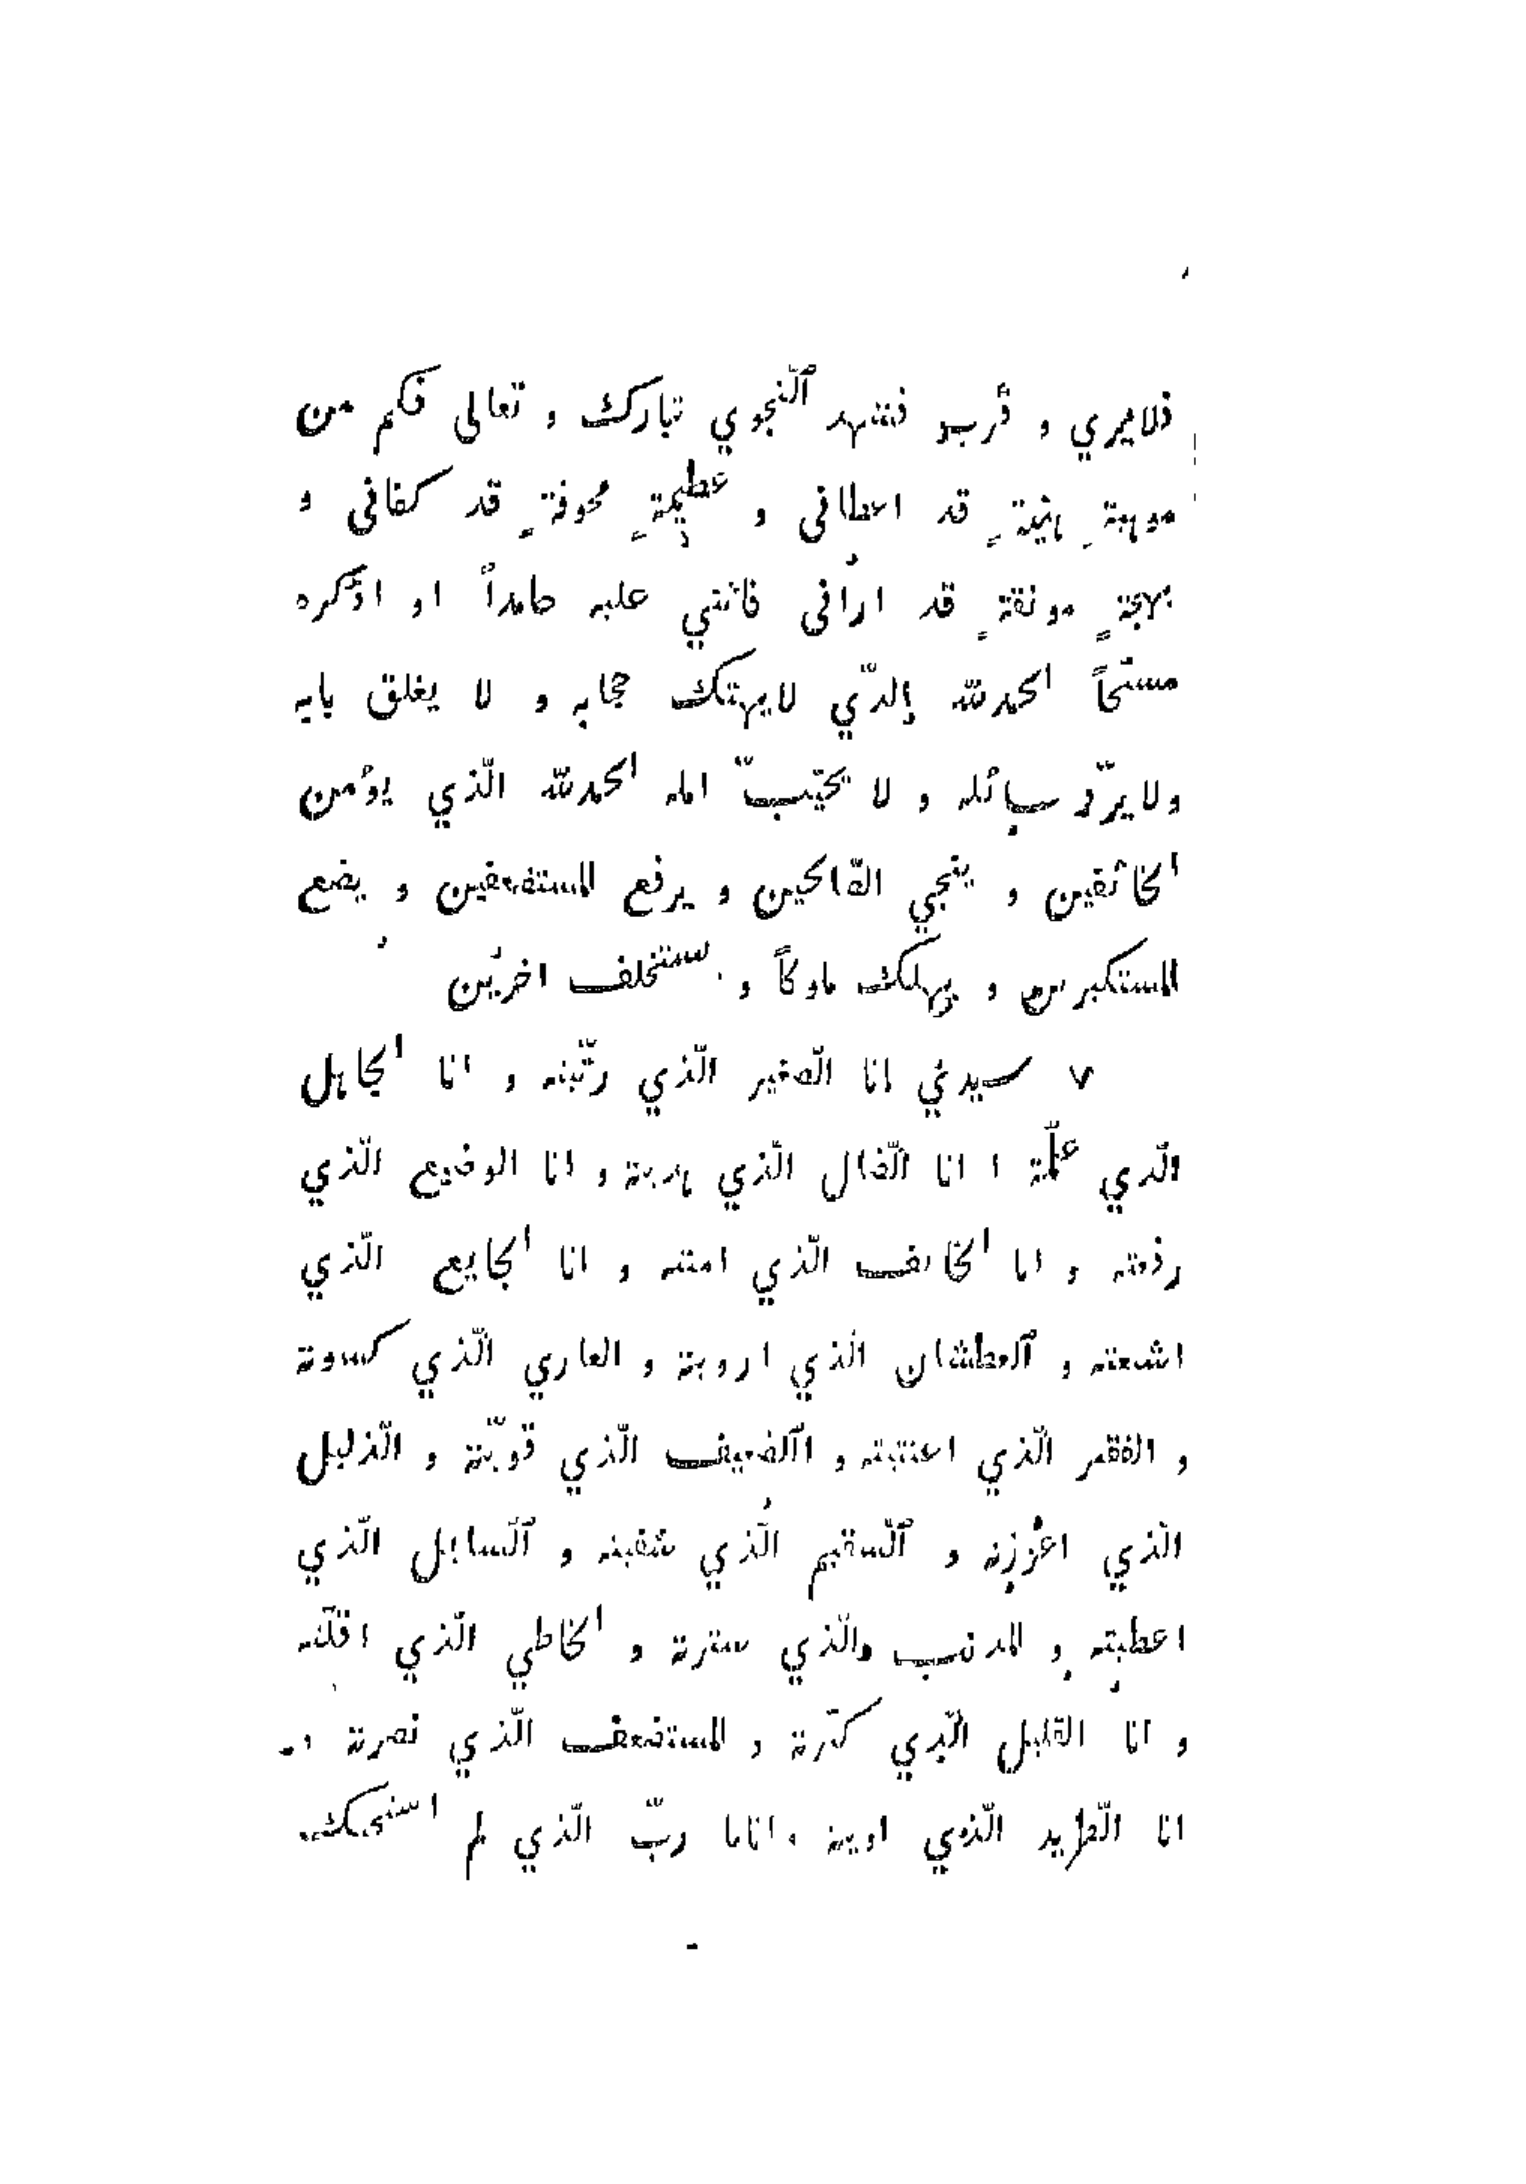 فلايري و قرب فشهد النّجوي تبارك و تعالى فكم من
موهبةٍ هنيئةٍ قد اعطانى و عظيمةٍ مخوفةٍ قد كفانى و
بهجةٍ مونقةٍ قد ارانى فاثني عليه حامداً او اذكره
مسبّحاً الحمدلله الّذي لايهتك حجابه و لا يغلق بابه
ولا يردّ سائله و لا يخيّب امله الحمدلله الّذي يؤمن
الخائفين و ينجي الصّالحين و يرفع المستضعفين و يضع
المستكبرين و يهلك ملوكاً و يستخلف اخرين
٧ سيدي انا الصّغير الّذي ربّيته و انا الجاهل
الّذي علّمته ا انا الضّال الّذي هديته و انا الوضيع الّذي
رفعته و انا الخايف الّذي امنته و انا الجايع الّذي
اشبعته و العطشان الّذي ارويته و العاري الّذي كسوته
و الفقير الّذي اغنيته و الضّعيف الّذي قوّيته و الذّليل
الّذي اعززته و السّقيم الّذي شفيته و السّايل الّذي
اعطيته و المذنب والّذي سترته و الخاطي الّذي اقلته
و انا القليل الّذي كثّرته و المستضعف الّذي نصرته و
انا الطّريد الّذي اويته و انا يا ربّ الّذي لم استحيك